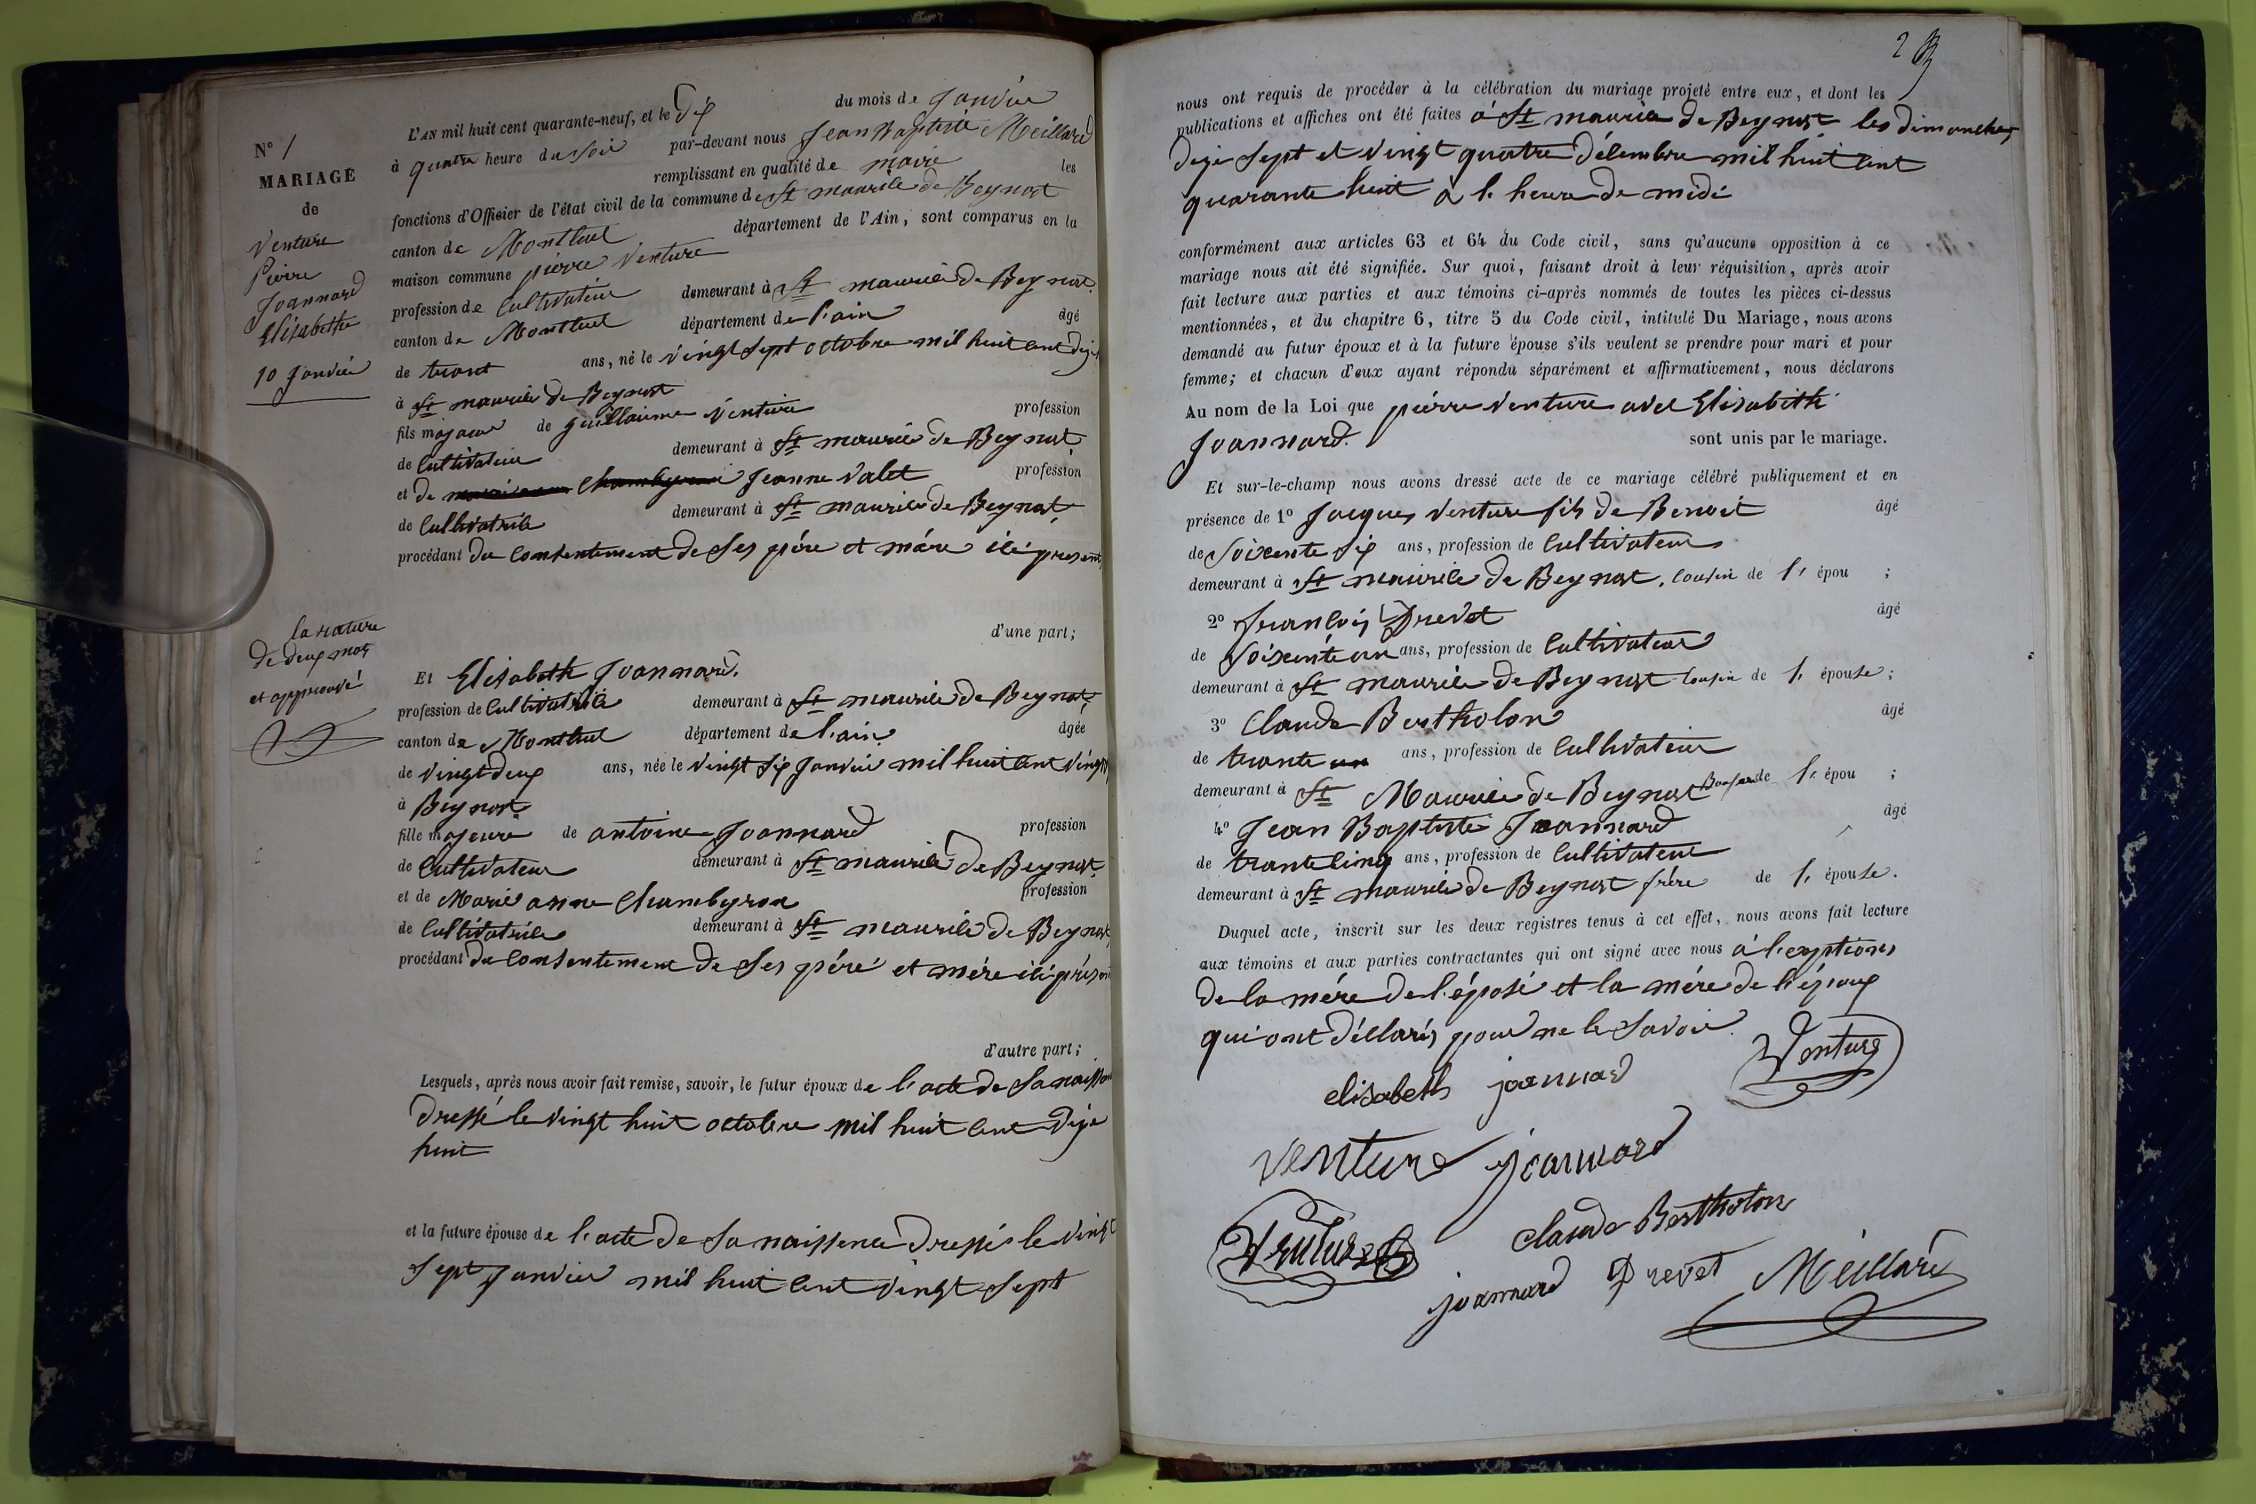 N° 1
MARIAGE
de
Venture
Pierre
Joannard
Elisabethe
10 Janvier
L'AN mil huit cent quarante-neuf, et le Dix du mois de Janvier
à quatre heure du soir par-devant nous Jean Baptiste Meillard
remplissant en qualité de maire les
fonctions d'Officier de l'état civil de la commune de St maurice de Beynost
canton de Montluel département de l'Ain, sont comparus en la
maison commune pierre Venture
profession de Cultivateur demeurant à St maurice de Beynost
canton de Montluel département de l'ain âgé
de trant ans, né le vingt sept octobre mil huit cent dix
à St maurice de Beynost
fils majeur de Guillaume Venture profession
de Cultivateur demeurant à St maurice de Beynost
et de Chambyron Jeanne Valet profession
de Cultivatrice demeurant à St maurice de Beynost
procédant du Consentement de Ses père et mère ici present
d'une part;
la rature
de deux mots
et approuvé
Et Elisabeth Joannard.
profession de Cultivatrice demeurant à St maurice de Beynost
canton de Montluel département de l'ain âgée
de vingt deux ans, née le vingt six Janvier mil huit cent vingt
à Beynost
fille majeure de antoine Joannard profession
de Cultivateur demeurant à St maurice de Beynost
et de Marie anne Chambyron profession
de Cultivatrice demeurant à St maurice de Beynost
procédant du Consentement de Ses père et mère ici présent
d'autre part;
Lesquels, après nous avoir fait remise, savoir, le futur époux de l'acte de Sa naissance
Dressé le vingt huit octobre mil huit cent dixe
huit
et la future épouse de l'acte de Sa naissence Dressé le vingt
Sept Janvier mil huit cent vingt Sept
2
nous ont requis de procéder à la célébration du mariage projeté entre eux, et dont les
publications et affiches ont été faites à St maurice de Beynost les dimanches
dixe Sept et vingt quatre décembre mil huit cent
quarante huit à l. heure de midi
conformément aux articles 63 et 64 du Code civil, sans qu'aucune opposition à ce
mariage nous ait été signifiée. Sur quoi, faisant droit à leur réquisition, après avoir
fait lecture aux parties et aux témoins ci-après nommés de toutes les pièces ci-dessus
mentionnées, et du chapitre 6, titre 5 du Code civil, intitulé Du Mariage, nous avons
demandé au futur époux et à la future épouse s'ils veulent se prendre pour mari et pour
femme; et chacun d'eux ayant répondu séparément et affirmativement, nous déclarons
Au nom de la Loi que pierre Venture avec Elisabeth
Joannard. sont unis par le mariage.
Et sur-le-champ nous avons dressé acte de ce mariage célébré publiquement et en
présence de 1° Jacques Venture fils de Benoit âgé
de Soixente Six ans, profession de Cultivateur
demeurant à St maurice de Beynost, Cousin de l' épou ;
2° Francois Drevet âgé
de Soixente un ans, profession de Cultivateur
demeurant à St maurice de Beynost Cousin de l' épouse ;
3° Claude Bertholon âgé
de trante un ans, profession de Cultivateur
demeurant à St Maurice de Beynost de l' épou ;
4° Jean Baptiste Joannard âgé
de trante cinq ans, profession de Cultivateur
demeurant à St maurice de Beynost frére de l' épouse.
Duquel acte, inscrit sur les deux registres tenus à cet effet, nous avons fait lecture
aux témoins et aux parties contractantes qui ont signé avec nous à l'exption
de la mére de l'éposé et la mére de l'époux
qui ont déllarés pour ne le Savoir.
elisabeth joannard Venture
Venture joannard
Venture Claude Bertholon
joannard Drevet Meillard